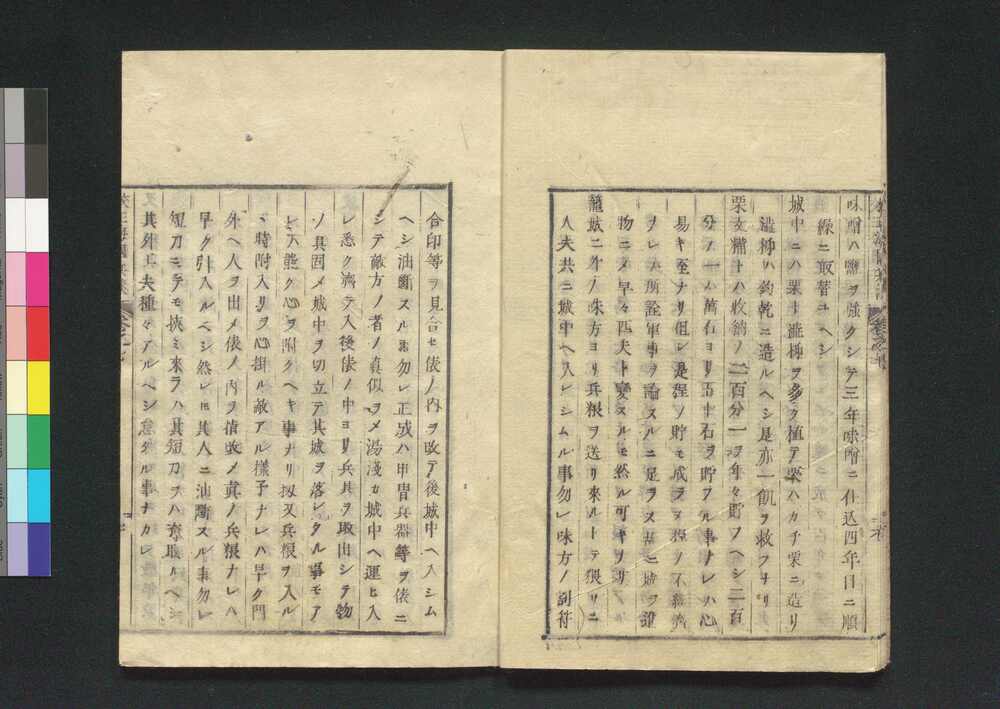 味噌ハ鹽ヲ強クシテ三年味噌ニ仕込四年目ニ順
線ニ取替ユヘシ
城中ニハ栗ト澁柿ヲ多ク植テ栗ハカチ栗ニ造リ
澁柿ハ釣乾ニ造ルヘシ是亦一飢ヲ救フナリ
栗支糒ハ收納ノ二百分一ヲ年々貯フヘシ二百
分ノ一ハ萬石ヨリ五十石ヲ貯フル事ナレハ心
易キ至ナリ但レ是程ノ貯モ成ラヌ程ノ不經濟
ナレハ所詮軍事ヲ論スルニ足ラス
物ニメ早々匹夫ト變スルモ然ル可キナリ
籠城ニ外ノ味方ヨリ兵粮ヲ送リ來ルトテ猥リニ
人夫共ニ城中ヘ入レシムル事勿レ味方ノ割符
合印等ヲ見合セ俵ノ内ヲ改テ後城中ヘ入シム
ヘシ油斷スル事勿レ正成ハ甲冑兵器等ヲ俵ニ
シテ敵方ノ者ノ眞似ヲメ湯淺カ城中ヘ運ヒ入
レ悉ク濟テ入後俵ノ中ヨリ兵具ヲ取出シテ物
ノ具固メ城中ヲ切立テ其城ヲ落レタル事モア
レハ能ク心ヲ附クヘキ事ナリ扨又兵粮ヲ入ル
ヽ時附入リヲ心掛ル敵アル樣子ナレハ早ク門
外ヘ人ヲ出メ俵ノ内ヲ改メ眞ノ兵粮ナレハ
早ク引入ルベシ然レ𪜈其人ニ油斷スル事勿レ
短刀ニテモ挾ミ來ラハ其短刀ヲハ奪取ルヘシ
其外工夫種々アルヘシ怠タル事ナカレ